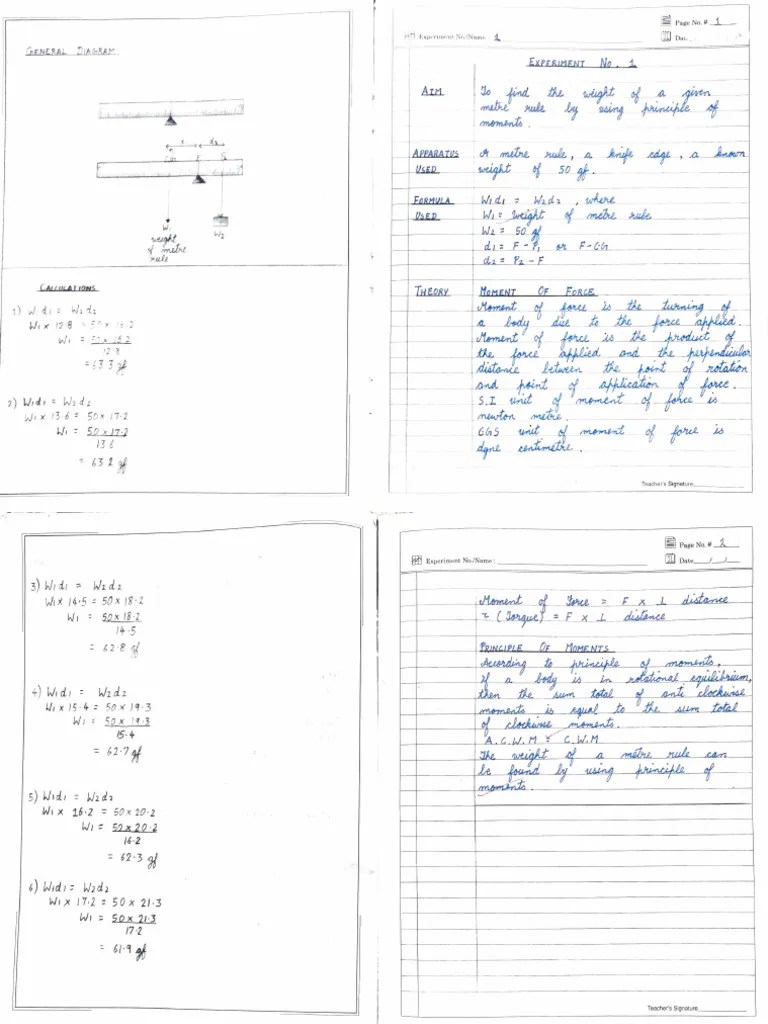 GENERAL DIAGRAM
d2
W1
weight
of metre
rule
W2
CALCULATIONS
1) W1d1 = W2d2
W1 x 12.8 = 50 x 16.2
W1 = 50 x 16.2
12.8
= 63.3 gf
2) W1d1 = W2d2
W1 x 13.6 = 50 x 17.2
W1 = 50 x 17.2
13.6
= 63.2 gf
Page No. # 1
Experiment No./Name 1
EXPERIMENT No. 1
AIM To find the weight of a given
metre rule by using principle of
moments.
APPARATUS A metre rule, a knife edge, a known
USED weight of 50 gf.
FORMULA W1d1 = W2d2, where
USED W1 = Weight of metre rule
W2 = 50 gf
d1 = F - P1 or F - CG
d2 = P2 - F
THEORY MOMENT OF FORCE
Moment of force is the turning of
a body due to the force applied.
Moment of force is the product of
the force applied and the perpendicular
distance between the point of rotation
and point of application of force.
S.I unit of moment of force is
newton metre.
CGS unit of moment of force is
dyne centimetre.
Teacher's Signature
3) W1d1 = W2d2
W1 x 14.5 = 50 x 18.2
W1 = 50 x 18.2
14.5
= 62.8 gf
4) W1d1 = W2d2
W1 x 15.4 = 50 x 19.3
W1 = 50 x 19.3
15.4
= 62.7 gf
5) W1d1 = W2d2
W1 x 16.2 = 50 x 20.2
W1 = 50 x 20.2
16.2
= 62.3 gf
6) W1d1 = W2d2
W1 x 17.2 = 50 x 21.3
W1 = 50 x 21.3
17.2
= 61.9 gf
Page No. # 2
Experiment No./Name :
Date
Moment of Force = F x ⊥ distance
τ (Torque) = F x ⊥ distance
PRINCIPLE OF MOMENTS
According to principle of moments,
if a body is in rotational equilibrium,
then the sum total of anti clockwise
moments is equal to the sum total
of clockwise moments.
A.C.W.M = C.W.M
The weight of a metre rule can
be found by using principle of
moments.
Teacher's Signature